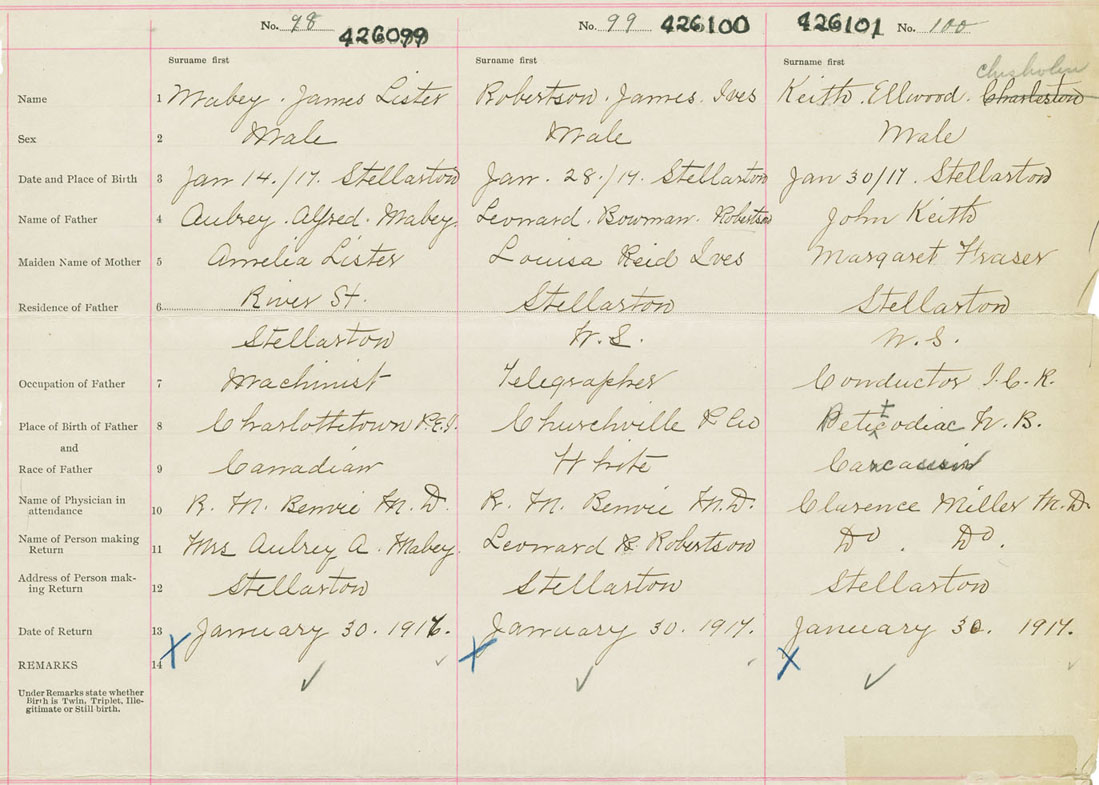 No. 98 426099 No. 99 426100 426101 No. 100
Surname first Surname first Surname first
Chisholm
Name 1 Mabey. James Lister Robertson. James. Ives Keith. Ellwood. Charleston
Sex 2 Male Male Male
Date and Place of Birth 3 Jan 14./17. Stellarton Jan. 28./17. Stellarton Jan 30/17. Stellarton
Name of Father 4 Aubrey. Alfred. Mabey. Leonard. Bowman. Robertson John Keith
Maiden Name of Mother 5 Amelia Lister Louisa Reid Ives Margaret Fraser
Residence of Father 6 River St. Stellarton Stellarton
Stellarton N.S. N.S.
Occupation of Father 7 Machinist Telegrapher Conductor I.C.R.
Place of Birth of Father 8 Charlottetown P.E.I. Churchville P Co Peticodiac N.B.
and
Race of Father 9 Canadian White
Name of Physician in attendance 10 R. M. Benvie M.D. R. M. Benvie M.D. Clarence Miller M.D.
Name of Person making Return 11 Mrs Aubrey A. Mabey. Leonard B. Robertson Do. Do.
Address of Person mak-
ing Return 12 Stellarton Stellarton Stellarton
Date of Return 13 January 30. 1917. January 30. 1917. January 30. 1917.
REMARKS 14
Under Remarks state whether
Birth is Twin, Triplet, Ille-
gitimate or Still birth.